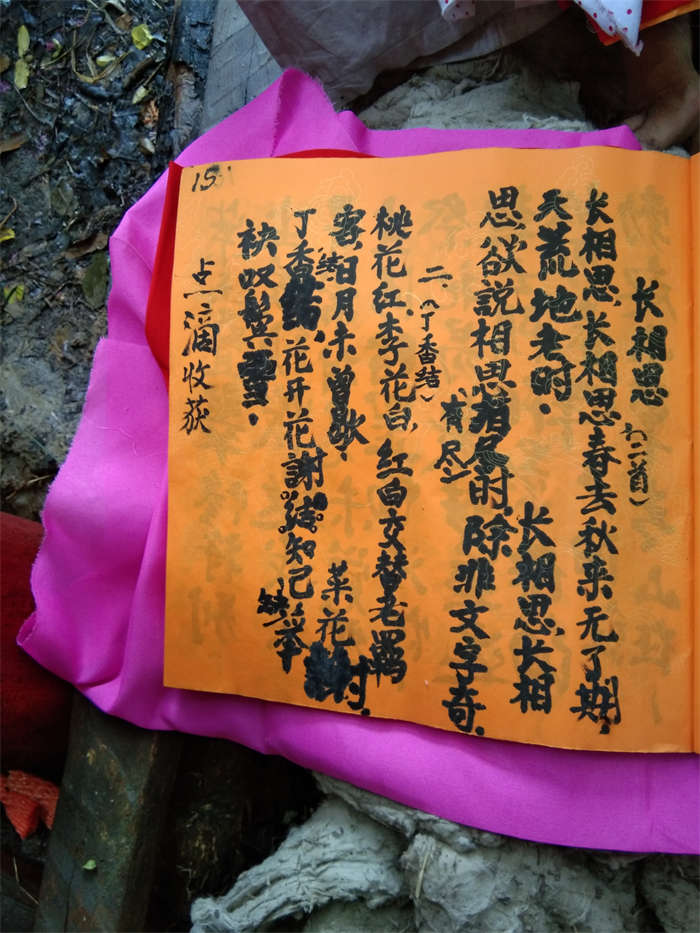 长相思（二首）
长相思，长相思春去秋来无了期，
天荒地老时．长相思，长相
思，欲説相思有尽时，除非文字奇．
二、（丁香结）
桃花红，李花白，红白交替老羁
客，日月未曾歇．菜花时．
丁香结，花开花謝結知己，举
袂叹鬓雪．
点滴收获
15